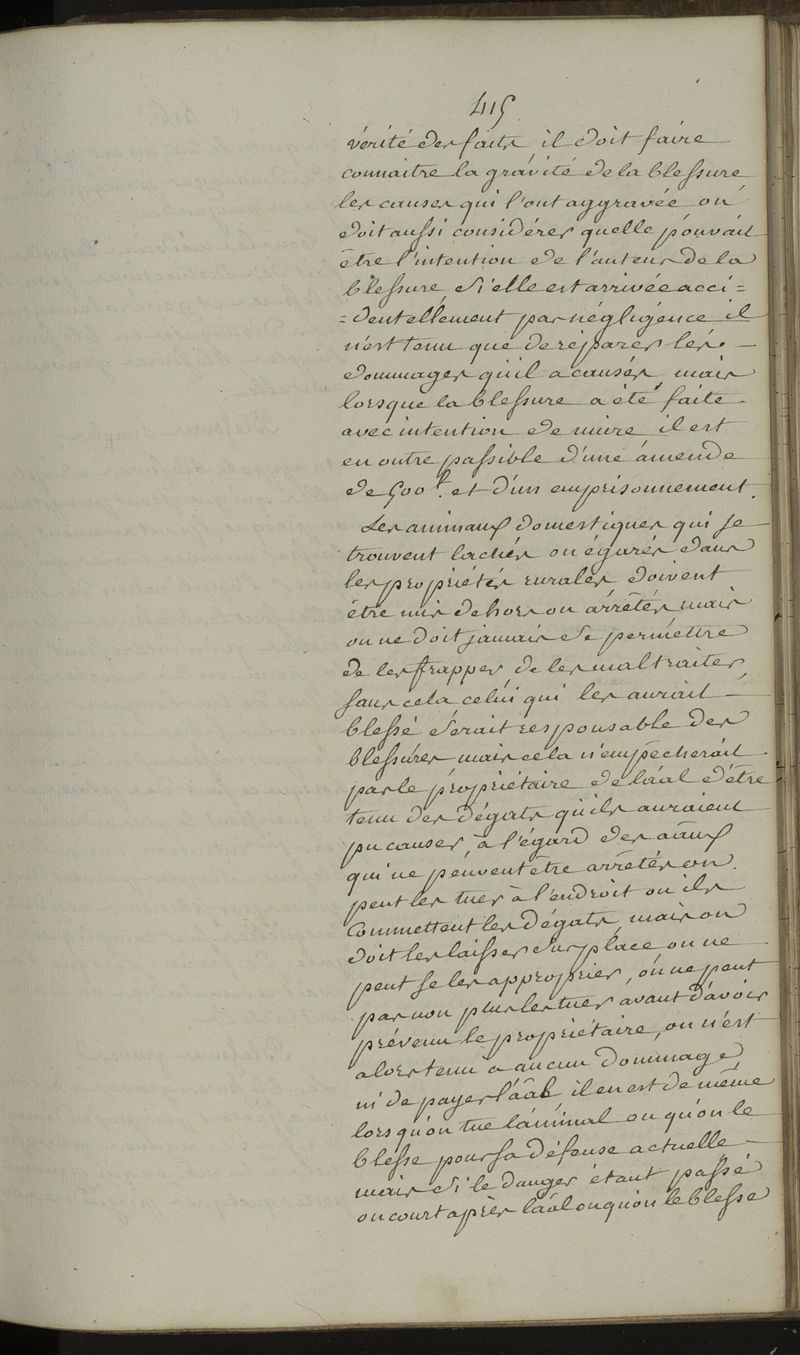 415
vérité des faits, il doit faire
connaitre la gravité de la blessure
les causes qui l'ont aggravée on
doit aussi considérer quelle pouvait
être l'intention de l'auteur de la
blessure si elle est arrivée acci=
=dentellement par négligence il
n'est tenu que de réparer les
dommages qu'il a causés, mais
lorsque la blessure a été faite
avec intention de nuire il est
en outre passible d'une amende
de 500f. et d'un emprisonnement.
Les animaux domestiques qui se
trouvent lachés ou égarés dans
les propriétés rurales doivent
être mis dehors ou arrêtés mais
on ne doit jamais se permettre
de les frapper, de les maltraiter,
sans cela celui qui les aurait
blessé serait responsable des
blessures mais cela n'empecherait
pas le propriétaire de l'aâl d'être
tenu des dégats qu'ils auraient
pu causer, à l'égard des aâux
qui ne peuvent être arrêtés on
peut les tuer à l'endroit ou ils
commettent les dégats, mais on
doit les laisser sur place, on ne
peut se les approprier, on ne peut
pas non plus les tuer avant d'avoir
prévenu le propriétaire, on n'est
alors tenu a aucun dommage
ni de payer l'aâl, il en est de même
lorsqu'on tue l'animal ou qu'on le
blesse pour sa défense actuelle
mais si le danger étant passé
on court après l'aâl ou qu'on le blesse